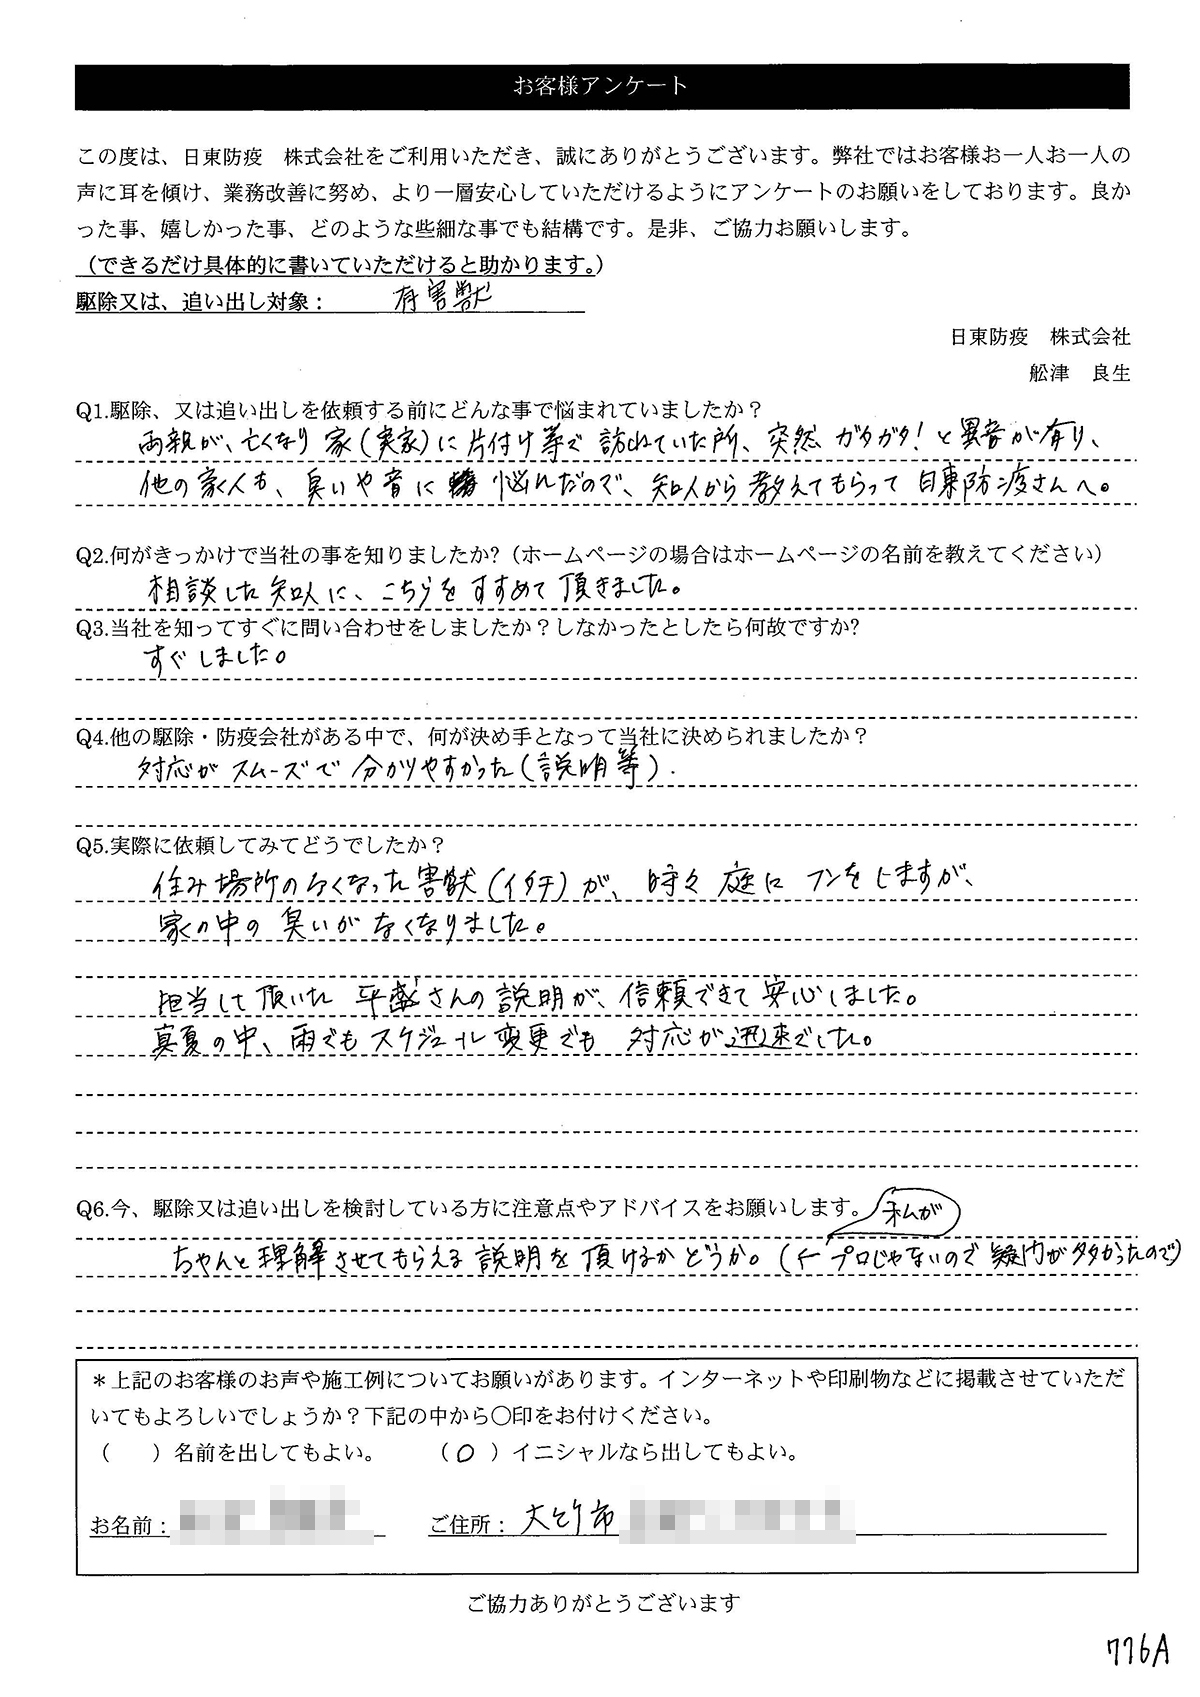 お客様アンケート
この度は、日東防疫　株式会社をご利用いただき、誠にありがとうございます。弊社ではお客様お一人お一人の
声に耳を傾け、業務改善に努め、より一層安心していただけるようにアンケートのお願いをしております。良か
った事、嬉しかった事、どのような些細な事でも結構です。是非、ご協力お願いします。
（できるだけ具体的に書いていただけると助かります。）
駆除又は、追い出し対象： 有害獣
日東防疫　株式会社
舩津　良生
Q1.駆除、又は追い出しを依頼する前にどんな事で悩まれていましたか？
両親が、亡くなり 家(実家)に片付け等で 訪れていた所、突然 ガタガタ！と異音が有り、
他の家人も、臭いや音に 悩んだので、知人から 教えてもらって 日東防疫さんへ。
Q2.何がきっかけで当社の事を知りましたか?（ホームページの場合はホームページの名前を教えてください）
相談した知人に、こちらを すすめて 頂きました。
Q3.当社を知ってすぐに問い合わせをしましたか？しなかったとしたら何故ですか?
すぐしました。
Q4.他の駆除・防疫会社がある中で、何が決め手となって当社に決められましたか？
対応が スムーズで 分かりやすかった(説明等).
Q5.実際に依頼してみてどうでしたか？
住み場所のなくなった害獣(イタチ)が、時々 庭に フンをしますが、
家の中の 臭いが なくなりました。
担当して頂いた 平盛さんの説明が、信頼できて 安心しました。
真夏の中、雨でもスケジュール変更でも 対応が迅速でした。
Q6.今、駆除又は追い出しを検討している方に注意点やアドバイスをお願いします。 私が
ちゃんと理解させてもらえる説明を頂けるかどうか。(←プロじゃないので疑問が多かったので)
＊上記のお客様のお声や施工例についてお願いがあります。インターネットや印刷物などに掲載させていただ
いてもよろしいでしょうか？下記の中から〇印をお付けください。
（　　）名前を出してもよい。　（○）イニシャルなら出してもよい。
お名前：　ご住所：大竹市
ご協力ありがとうございます
776A